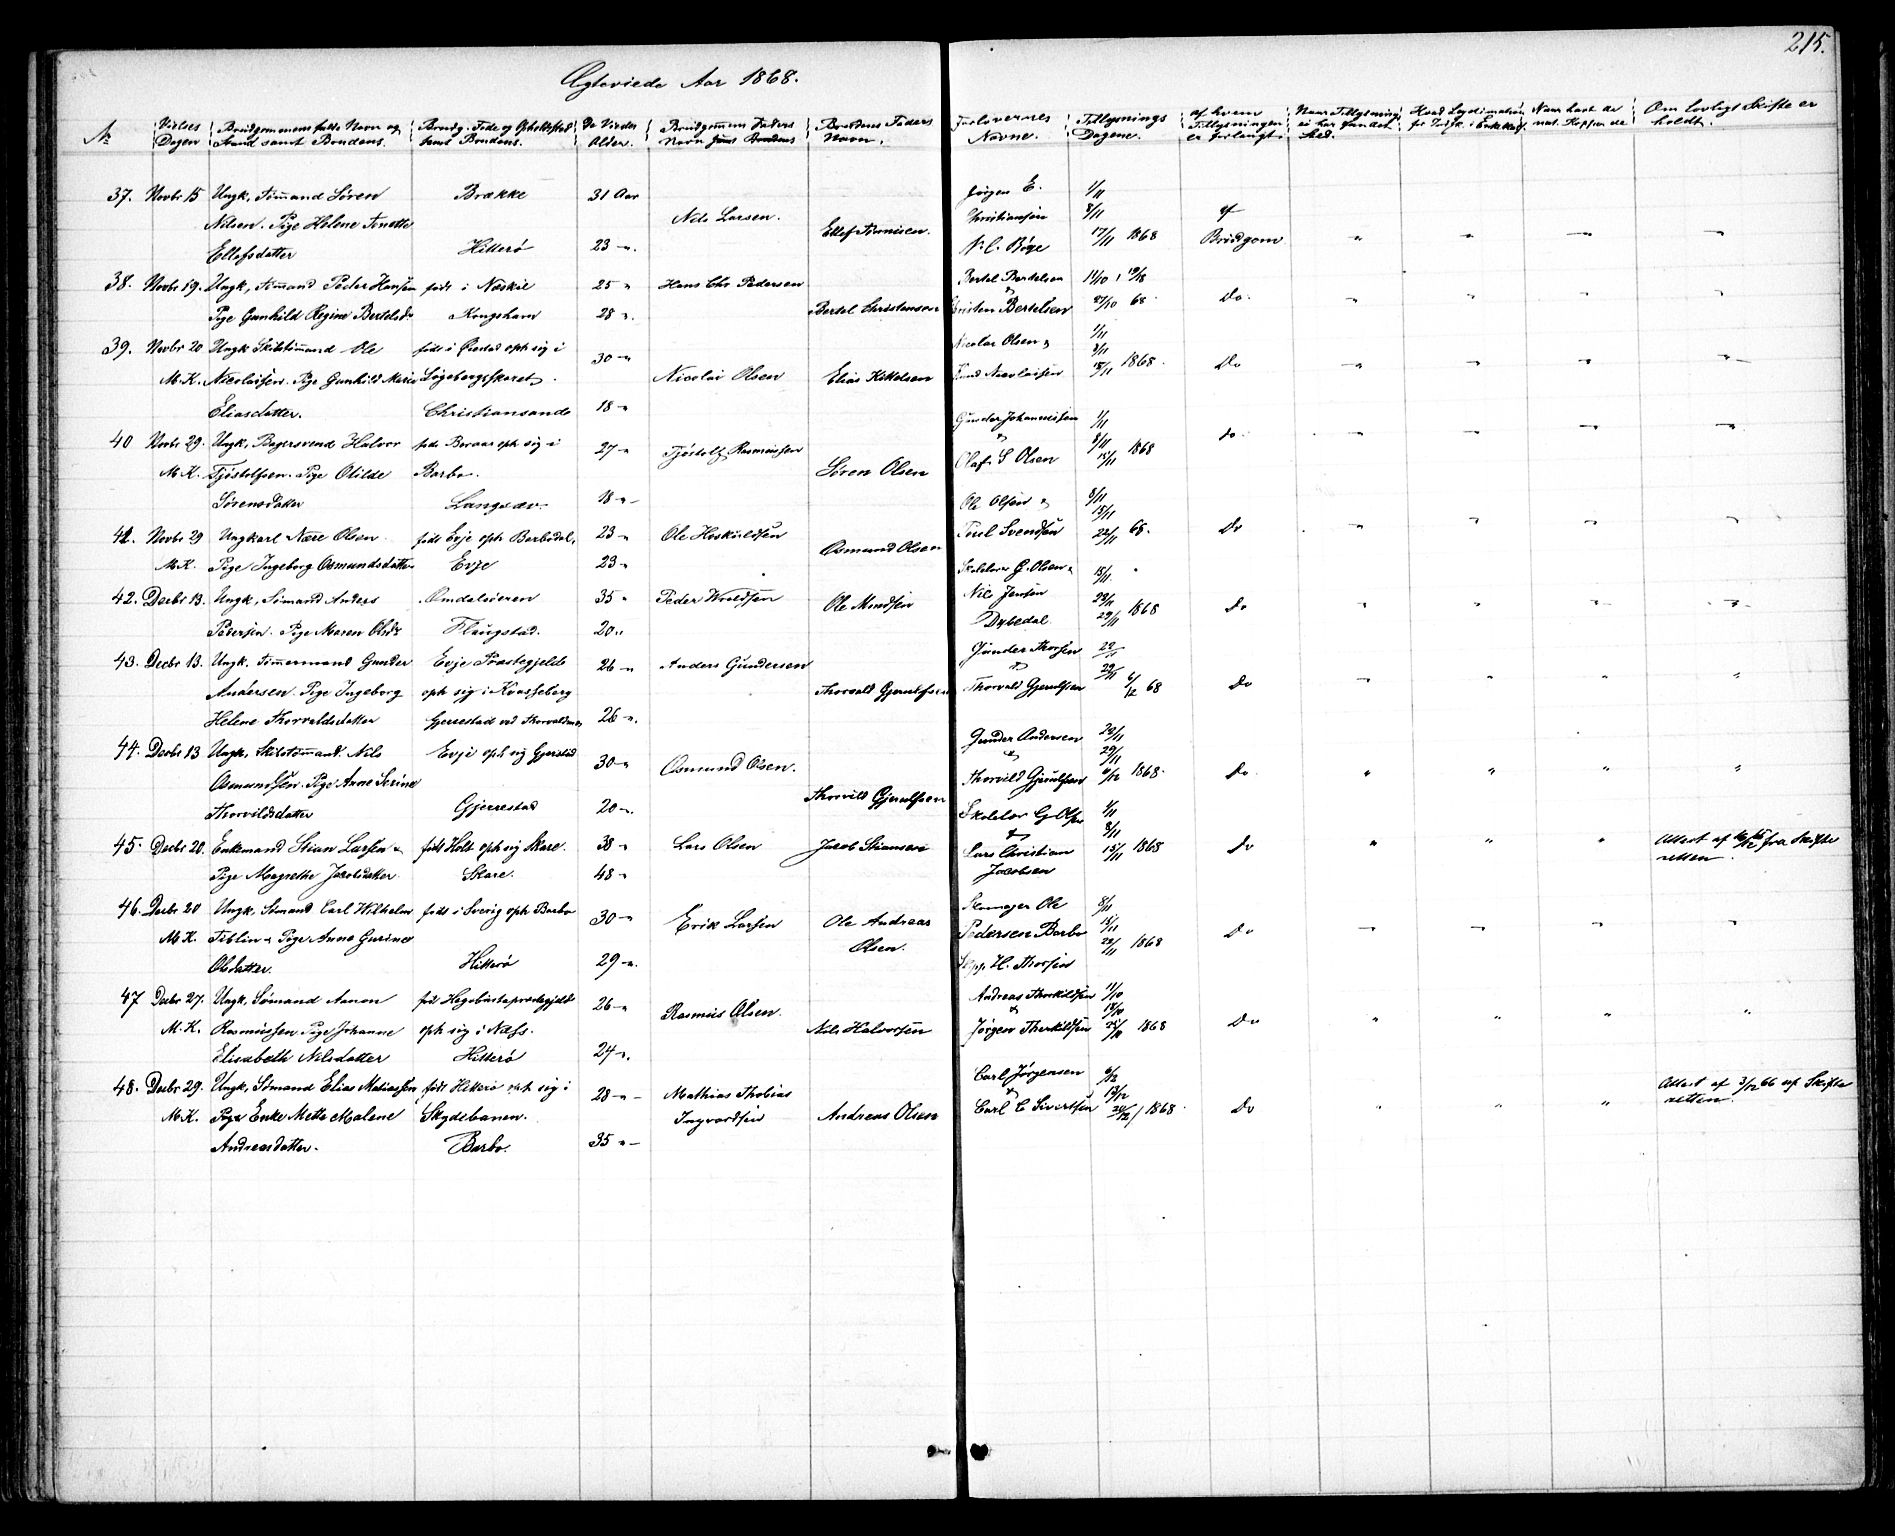 215.
Ægteviede Aar 1868.
No
Vielses Dagen
Brudgommens fulde Navn og Stand samt Brudens.
Brudg. Føde og Opholdsted samt Brudens.
De Viedes Alder.
Brudgommens Faders Navn
Brudens Faders Navn.
Forlovernes Navne.
Tillysnings Dagene.
af hvem Tillysningen er forlangt
Naar Tillysning ei har fundet Sted.
Naar havt de nat. Kopper
Om lovligt Skifte er holdt.
37. Novbr 15 Ungk, Sømand Søren Brække 31 Aar Jørgen E. 1/11
Nilsen. Pige Helene Tonette Nils Larsen. Christiansen 8/11 af
Ellefsdatter Hitterø 23 " Ellef Tønnisen. N. C. Bøge 17/11 1868 Brudgom " " " "
38. Novbr 19. Ungk, Sømand Peder Hansen født i Næskil 25 " Hans Chr Pedersen Bertel Bertelsen
Pige Gunhild Regine Bertelsd. Kongshavn 28 " Bertel Christensen Christen Bertelsen 68 Do. " " " "
39. Novbr 20 Ungk Skibstømmand Ole født i Øiestad oph sig i 30 " Nicolai Olsen & 1/11 8/11
M. K. Nicolaisen. Pige Gunhild Marie Nicolai Olsen Elias Kittelsen Knud Nicolaisen 15/11 1868 Do " " " "
Eliasdatter. Christiansands 18 "
40 Novbr 29. Ungk, Bagersvend Halvor 27 " Tjøstolf Rasmussen Gunder Johannesen & 1/11 8/11
M. K. Tjøstolfsen. Pige Otilde Barbo. Søren Olsen Olaf S Olsen 15/11 1868 Do " " " "
Sørensdatter Langsæv 18 "
41. Novbr 29 Ungkarl Nære Olsen født Evje oph Barbodal, 23 " Ole Hoskuldsen Ole Olsen & 8/11 15/11
M. K. Pige Ingeborg Osmundsdatter Evje 23 " Osmund Olsen Svendsen 22/11 68. Do " " " "
42. Decbr 13. Ungk, Sømand Anders 35 " Peder Ole Skolelær G. Olsen & 15/11
Pedersen. Pige Maren Olsd. 20 " Nic Jensen Dybedal 29/11 1868 Do " " " "
43. Decbr 13. Ungk. Tømmermand Gunder Evje Præstegjeld 26 " Anders Gundersen Gunder Thorsen 22/11 29/11
Andersen. Pige Ingeborg oph sig i Krøsseberg Thorvald Gjerulfsen & Thorvald Gjerulfsen 6/12 68 Do " " " "
Helene Thorvaldsdatter Gjerrestad ved Thorvaldsnes 26 "
44. Decbr 13 Ungk, Skibstømmand. Nils Evje oph sig Gjerstad 30 " Osmund Olsen. Gunder Andersen 29/11
Osmundsen. Pige Anne Serine & Thorvild Gjerulfsen 6/12 1868. Do " " " "
Thorvildsdatter Gjerrestad 20 " Thorvild Gjerulfsen
45. Decbr 20. Enkemand Stian Larsen & født Holt oph sig Skare. 38 " Lars Olsen Jacob Stiansen Skolelær G Olsen & 1/11 8/11
Pige Magrethe Jacobsdatter. Skare. 48 " Lars Christian Jacobsen 15/11 1868 Do " " " Attest af fra Skifte retten.
46. Decbr 20 Ungk, Sømand Carl Wilhelm født i Sverig oph Barbo 30 " Erik Larsen Ole Andreas Olsen. Ole 8/11
M K. Tiblin & Pige Anne Gurine Pedersen Barbo 15/11 22/11 1868 Do " " " "
Olsdatter. Hitterø 29 " Skpp. H. Thorsen
47 Decbr 27. Ungk, Sømand Aanon 26 " Rasmus Olsen. Andreas Thorkildsen 11/10
M. K. Rasmussen Pige Johanne oph sig i Næss. Nils Halvorsen & Jørgen Therkildsen 18/10 25/10 1868 Do " " " "
Elisabeth Nilsdatter Hitterø 24 "
48. Decbr 29. Ungk, Sømand Elias Mathiassen født Hitterø oph sig i 28 " Mathias Thobias Carl Jørgensen 6/12 13/12
M. K. Pige Enke Mette Malene Skydebanen. Ingvardsen Andreas Olsen & Carl C Sivertsen 20/12 1868 Do " " " Attest af 3/12 66 af Skifte retten.
Andreasdatter. Barbo. 35 "